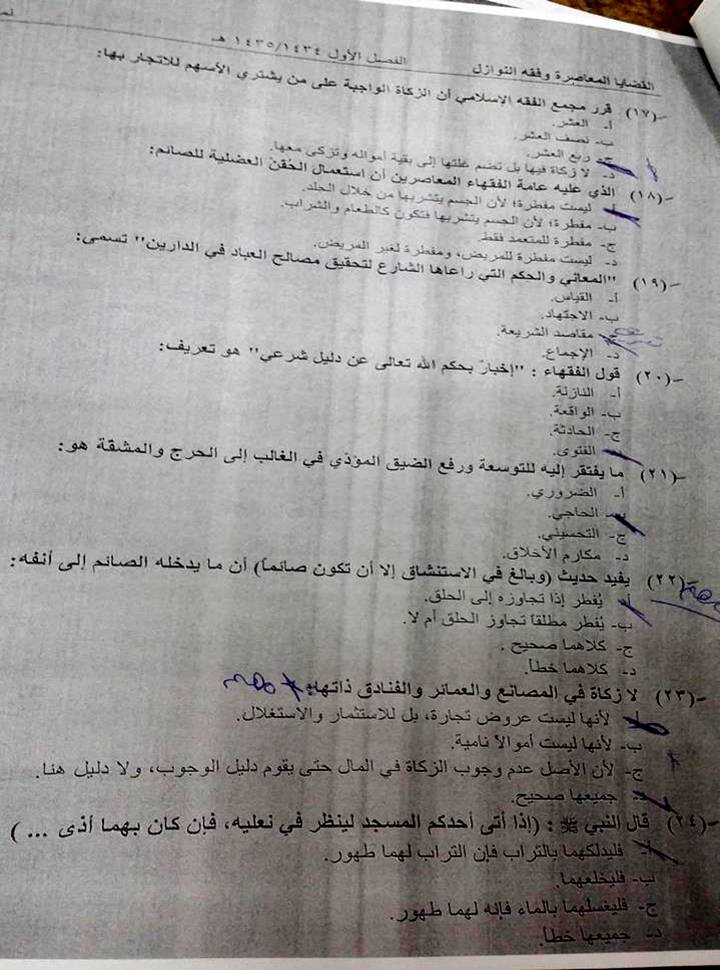 القضايا المعاصرة وفقه النوازل الفصل الأول ١٤٣٥/١٤٣٤ هـ
-(١٧) قرر مجمع الفقه الإسلامي أن الزكاة الواجبة على من يشتري الأسهم للاتجار بها:
أ- العشر.
ب- نصف العشر.
ج- ربع العشر.
د- لا زكاة فيها بل تضم غلتها إلى بقية أمواله وتزكى معها.
-(١٨) الذي عليه عامة الفقهاء المعاصرين أن استعمال الحُقن العضلية للصائم:
أ- ليست مفطرة؛ لأن الجسم يتشربها من خلال الجلد.
ب- مفطرة؛ لأن الجسم يتشربها فتكون كالطعام والشراب.
ج- مفطرة للمتعمد فقط.
د- ليست مفطرة للمريض، ومفطرة لغير المريض.
-(١٩) "المعاني والحكم التي راعاها الشارع لتحقيق مصالح العباد في الدارين" تسمى:
أ- القياس.
ب- الاجتهاد.
مقاصد الشريعة.
د- الإجماع.
-(٢٠) قول الفقهاء : "إخبارٌ بحكم الله تعالى عن دليل شرعي" هو تعريف:
أ- النازلة.
ب- الواقعة.
ج- الحادثة.
الفتوى.
-(٢١) ما يفتقر إليه للتوسعة ورفع الضيق المؤدي في الغالب إلى الحرج والمشقة هو:
أ- الضروري.
ب- الحاجي.
ج- التحسيني.
د- مكارم الأخلاق.
-(٢٢) يفيد حديث (وبالغ في الاستنشاق إلا أن تكون صائماً) أن ما يدخله الصائم إلى أنفه:
أ- يُفطر إذا تجاوزه إلى الحلق.
ب- يُفطر مطلقاً تجاوز الحلق أم لا.
ج- كلاهما صحيح .
د- كلاهما خطأ.
-(٢٣) لا زكاة في المصانع والعمائر والفنادق ذاتها:
أ- لأنها ليست عروض تجارة، بل للاستثمار والاستغلال.
ب- لأنها ليست أموالاً نامية.
ج- لأن الأصل عدم وجوب الزكاة في المال حتى يقوم دليل الوجوب، ولا دليل هنا.
د- جميعها صحيح.
-(٢٤) قال النبي ﷺ : (إذا أتى أحدكم المسجد لينظر في نعليه، فإن كان بهما أذى ... )
أ- فليدلكهما بالتراب فإن التراب لهما طهور.
ب- فليخلعهما.
ج- فليغسلهما بالماء فإنه لهما طهور.
د- جميعها خطأ.